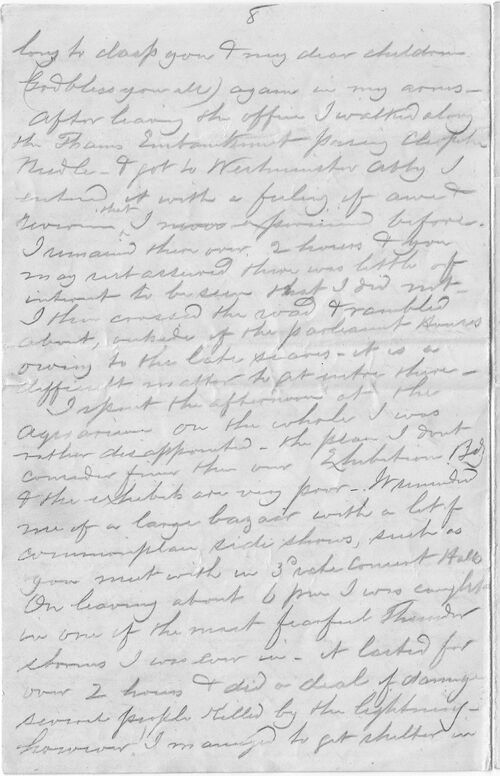 8
long to clasp you & my dear children
(God bless you all) again in my arms -
After leaving the office I walked along
the Thams Embankment passing Cleopatra
Needle - & got to Westminster Abby I
entered it with a feeling of awe &
that
I never experienced before.
I remained there over 2 hours & you
may rest assured there was little of
interest to be seen that I did not -
I then crossed the road & rambled
about, outside of the parliament Houses
owing to the late scares - it is a
difficult matter to get entre there -
I spent the afternoon at the
Aquarium on the whole I was
rather disappointed - the plan I dont
consider finer than our Exhibition Bdg
& the exhibits are very poor - It reminded
me of a large bazaar with a lot of
commonplace side shows, such as
you meet with in 3rd rate Concert Halls
On leaving about 6 pm I was caught
in one of the most fearful Thunder
storms I was ever in - it lasted for
over 2 hours & did a deal of damage
several people killed by the lightning -
however I managed to get shelter in